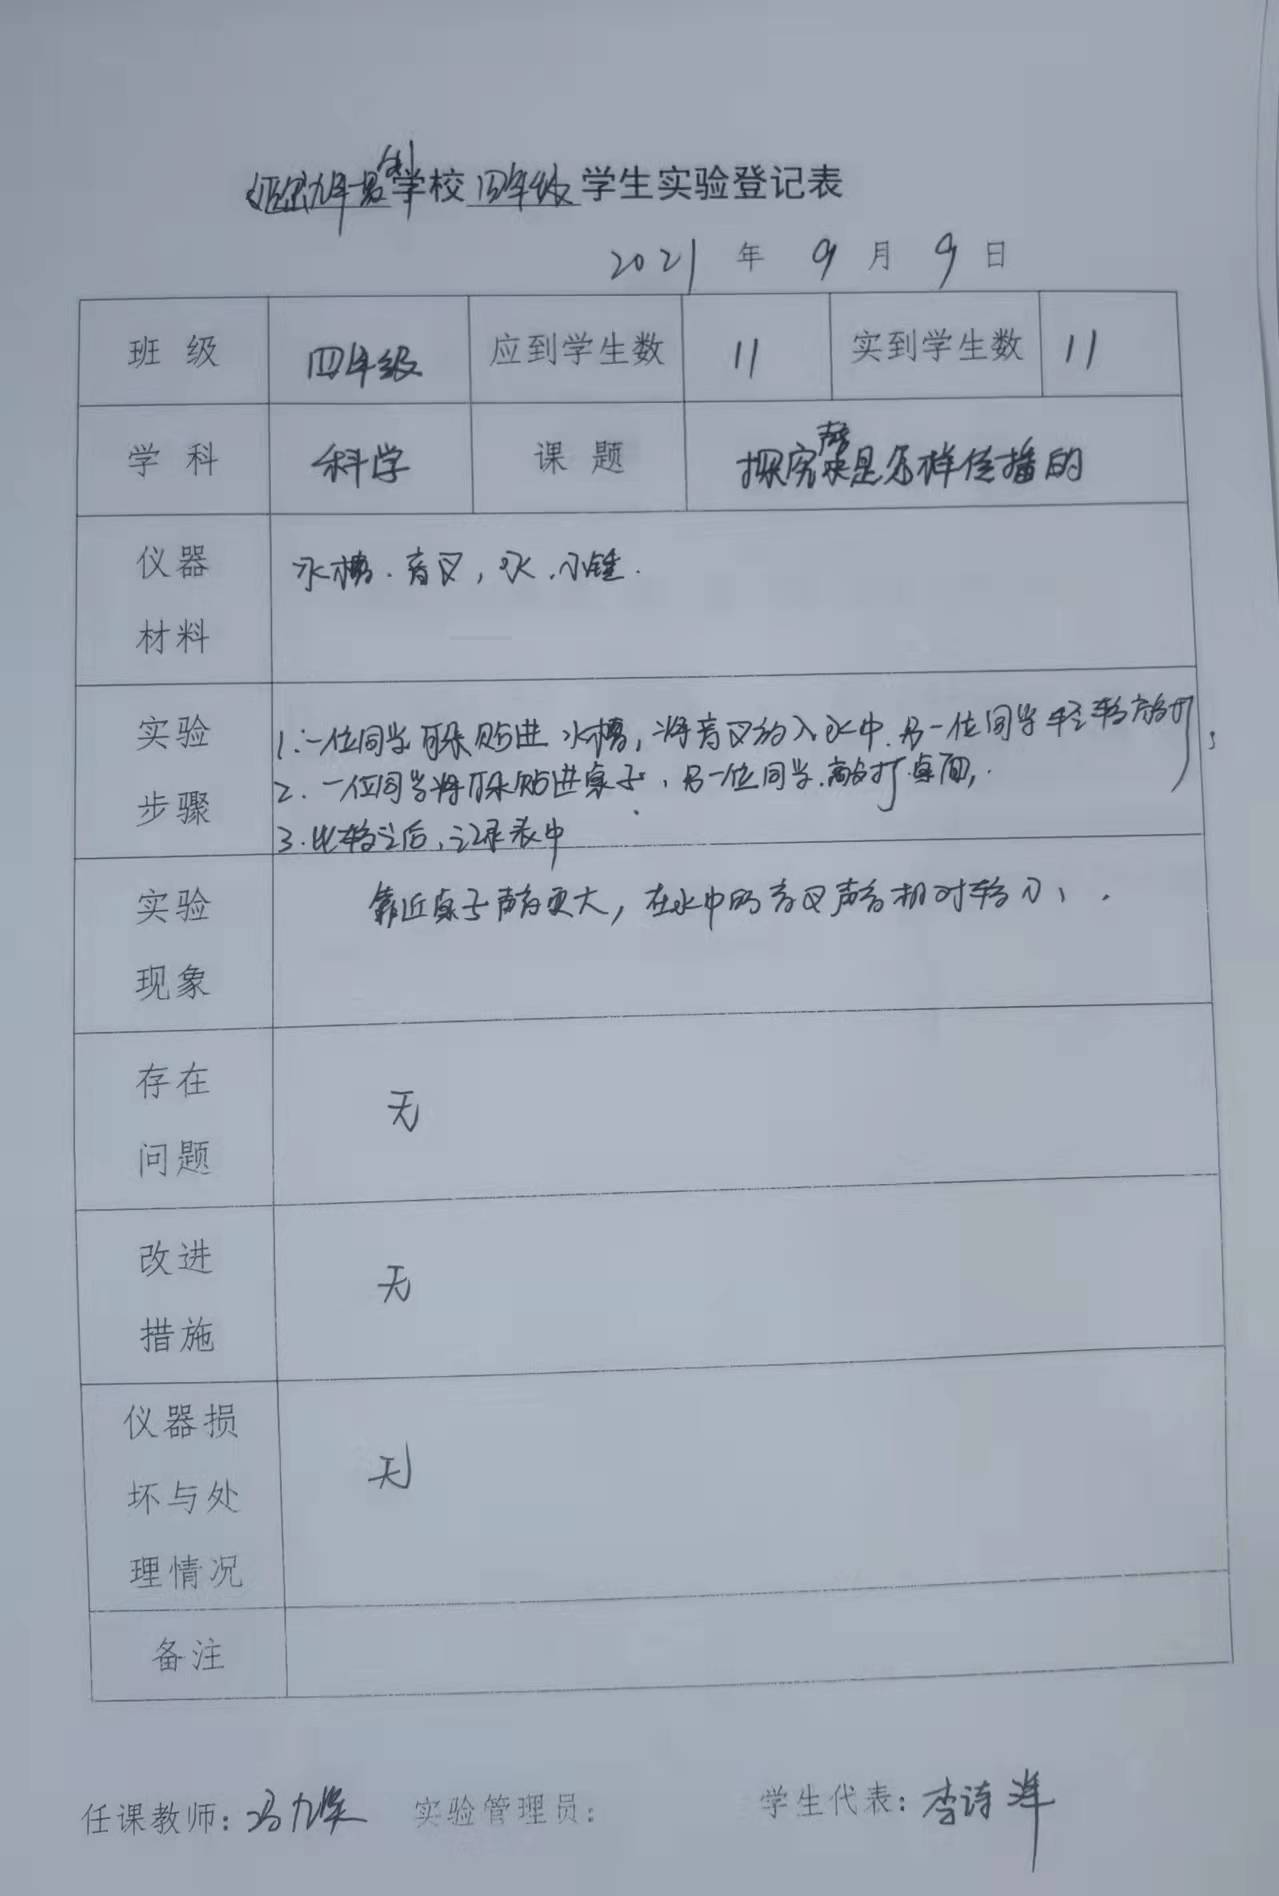 九年一贯制学校四年级学生实验登记表
2021 年 9 月 9 日
班 级 四年级 应到学生数 11 实到学生数 11
学 科 科学 课 题 探究声音是怎样传播的
仪器
材料
水槽.音叉,水.小锤.
实验
步骤
1.一位同学耳朵贴进水槽,将音叉放入水中.另一位同学轻轻敲打;
2.一位同学将耳朵贴进桌子,另一位同学.敲打桌面,.
3.比较之后,记录表中
实验
现象
靠近桌子声音更大,在水中的音叉声音相对较小.
存在
问题
无
改进
措施
无
仪器损
坏与处
理情况
无
备注
任课教师: 冯 实验管理员: 学生代表: 李诗洋